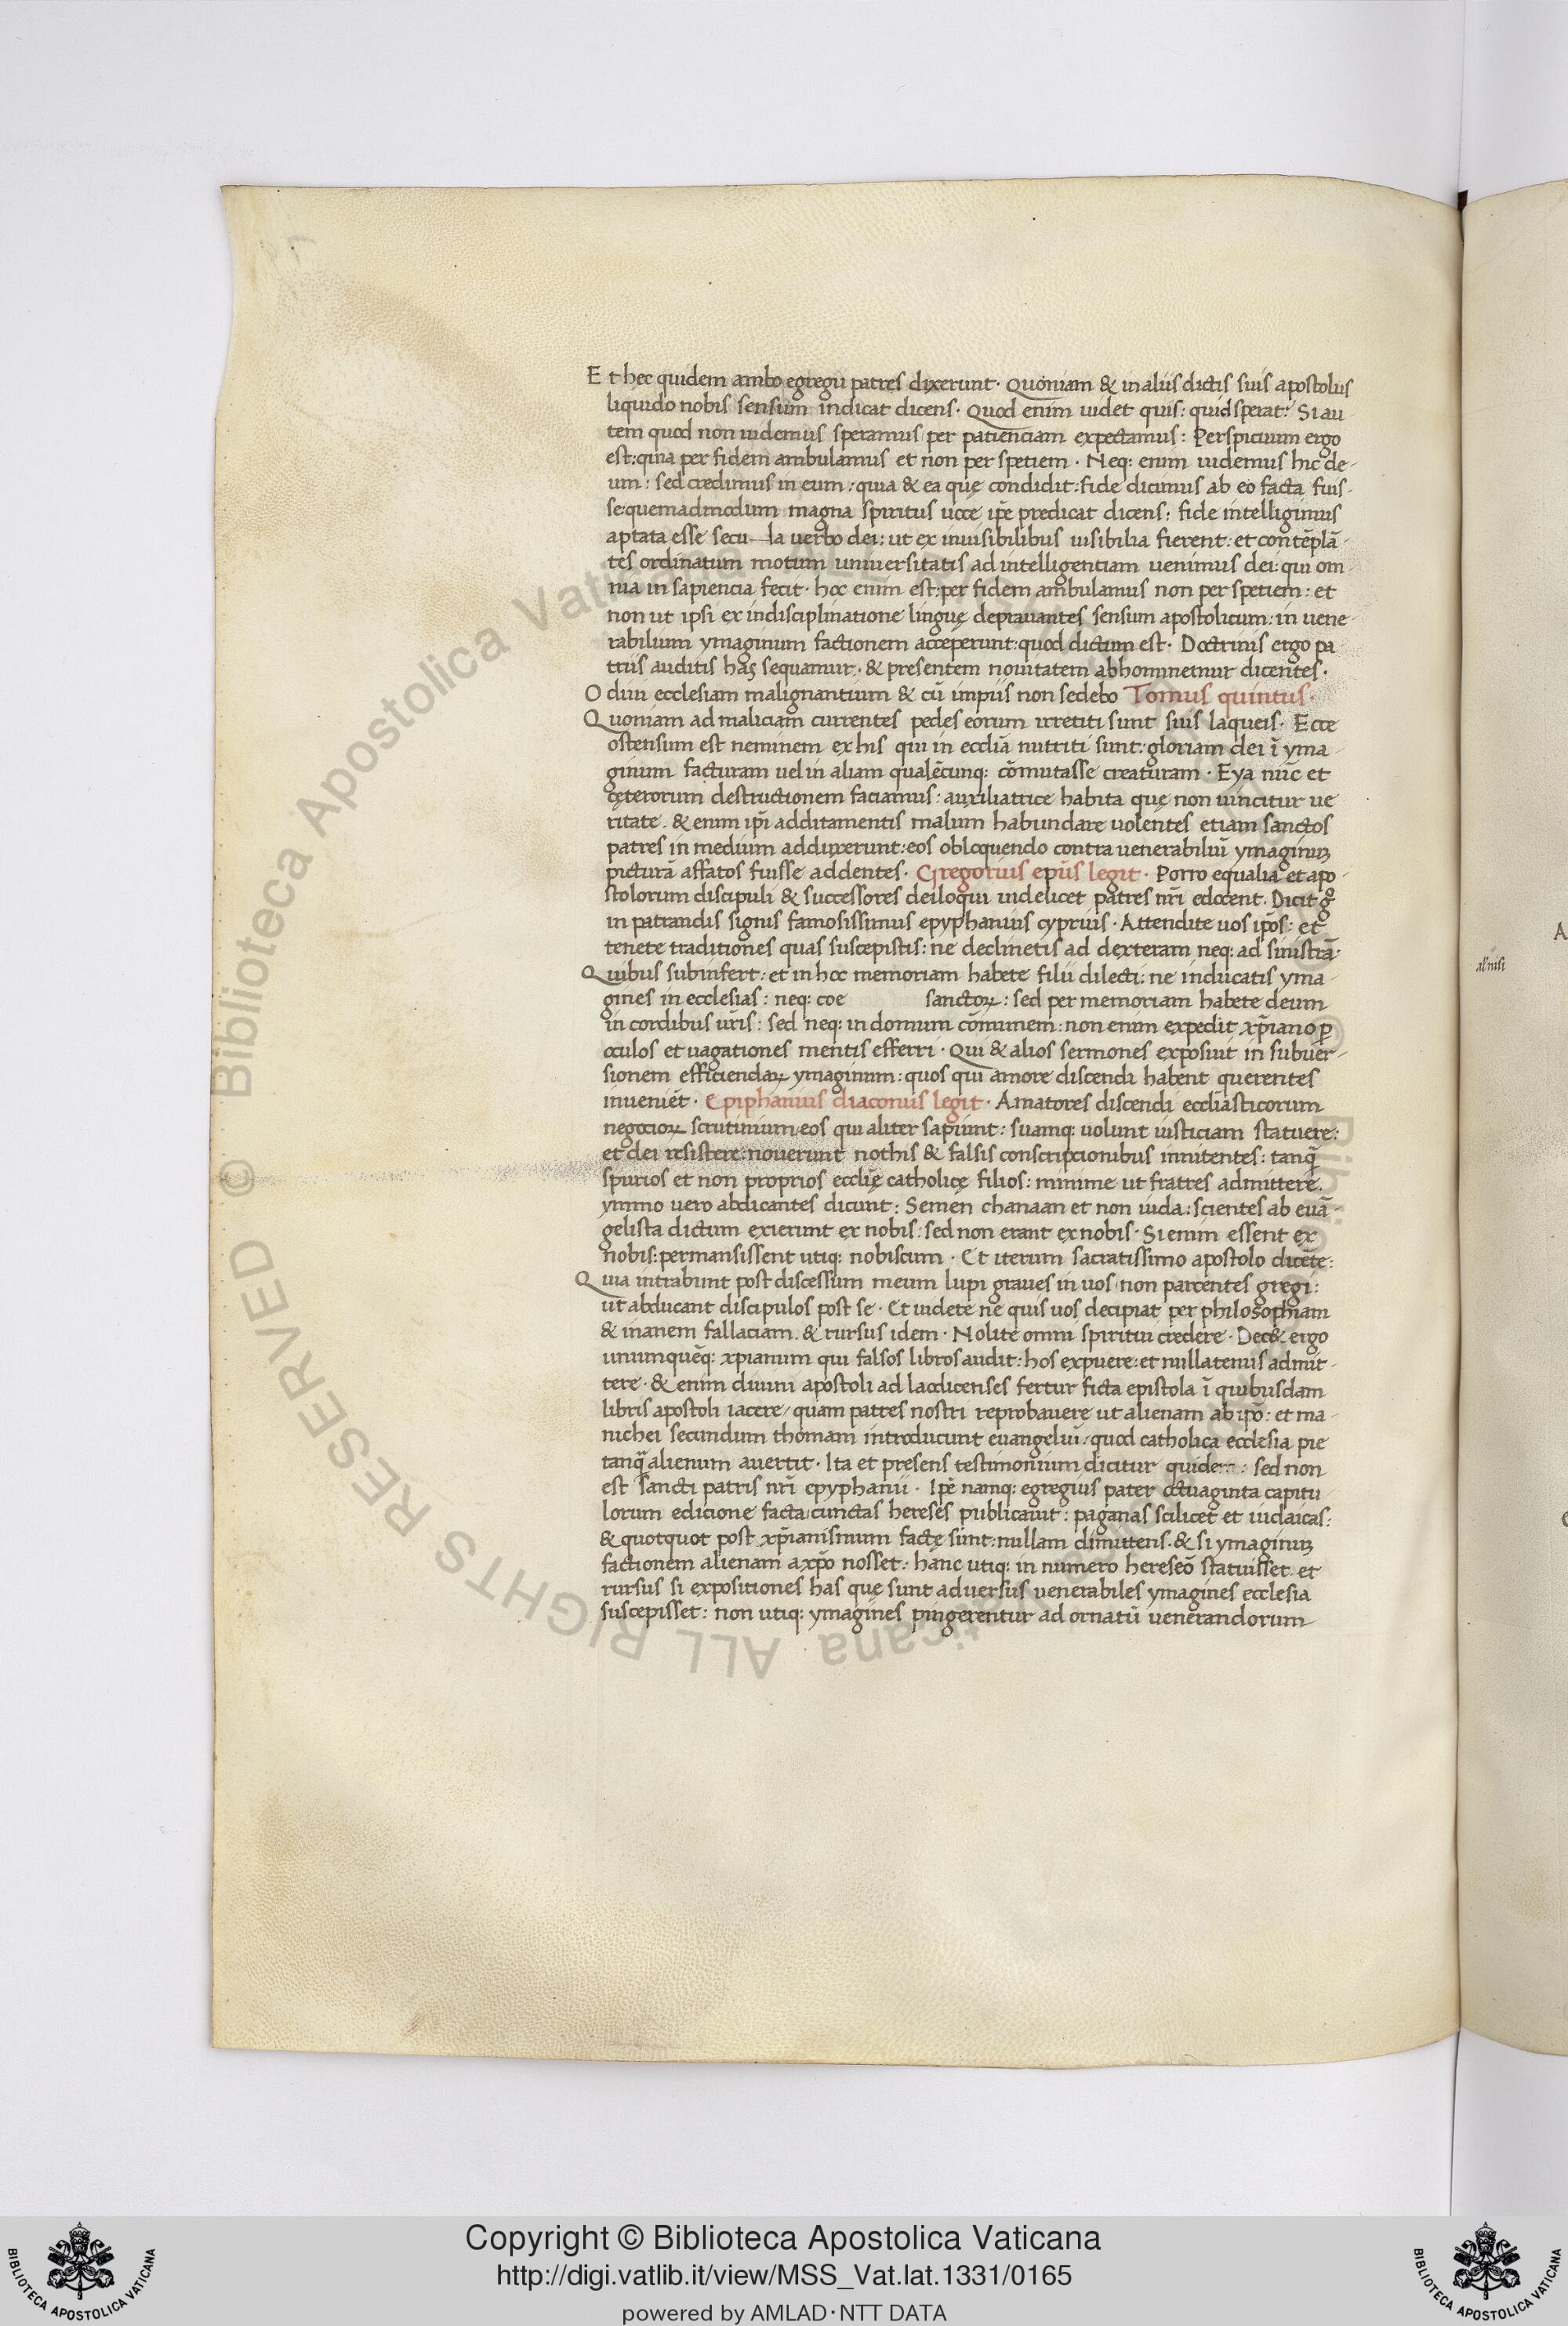 Et hęc quidem ambo egregii patres dixerunt. Quoniam & in aliis dictis suis apostolus
liquido nobis sensum indicat dicens. Quod enim uidet quis: quid sperat? Si au
tem quod non uidemus speramus per patienciam expectamus: Perspicuum ergo
est: quia per fidem ambulamus et non per spetiem. Neq: enim uidemus hic de-
um: sed credimus in eum: quia & ea quę condidit: fide dicimus ab eo facta fuis-
se: quemadmodum magna spiritus uoce ip̄e predicat dicens: fide intelligimus
aptata esse secu—la uerbo dei: ut ex inuisibilibus uisibilia fierent: et contēplā-
tes ordinatum motum uniuersitatis ad intelligentiam uenimus dei: qui om
nia in sapiencia fecit. hoc enim est: per fidem ambulamus non per spetiem: et
non ut ipsi ex indisciplinatione linguę deprauantes sensum apostolicum: in uene-
rabilium ymaginum factionem acceperunt: quod dictum est. Doctrinis ergo pa
triis auditis has sequamur. & presentem nouitatem abhominemur dicentes.
Odiui ecclesiam malignantium & cū impiis non sedebo Tomus quintus.
Quoniam ad maliciam currentes pedes eorum irretiti sunt suis laqueis. Ecce
ostensum est neminem ex his qui in eccliā nutriti sunt: gloriam dei ī yma-
ginum facturam uel in aliam qualēcunq: cōmutasse creaturam. Eya nūc et
cęterorum destructionem faciamus: auxiliatrice habita quę non uincitur ue
ritate. & enim ip̄i additamentis malum habundare uolentes etiam sanctos
patres in medium adduxerunt: eos obloquendo contra uenerabiliū ymaginuꝫ
picturā affatos fuisse addentes. Gregorius ep̄us legit. Porro equalia et apo-
stolorum discipuli & successores deiloqui uidelicet patres nr̄i edocent. Dicit gͦ
in patrandis signis famosissimus epyphanius cyprius. Attendite uos ip̄os: et
tenete traditiones quas suscepistis: ne declinetis ad dexteram neq: ad sinistrā.
Quibus subinfert: et in hoc memoriam habete filii dilecti: ne inducatis yma-
gines in ecclesias: neq: coe sanctoꝝ: sed per memoriam habete deum
in cordibus ur̄is: sed neq: in domum cōmunem: non enim expedit xp̄iano ꝑ
oculos et uagationes mentis efferri. Qui & alios sermones exposuit in subuer-
sionem efficiendaꝝ ymaginum: quos qui amore discendi habent querentes
inueniēt. Epiphanius diaconus legit. Amatores discendi eccliāsticorum
negocioꝝ scrutinium eos qui aliter sapiunt: suamq: uolunt iusticiam statuere:
et dei resistere: nouerunt nothis & falsis conscripcionibus innitentes: tanq̄
spurios et non proprios ecclię catholicę filios: minime ut fratres admittere.
ymmo uero abdicantes dicunt: Semen chanaan et non iuda: scientes ab euā-
gelista dictum exierunt ex nobis: sed non erant ex nobis. Si enim essent ex
nobis: permansissent utiq: nobiscum. Et iterum sacratissimo apostolo dicēte:
Quia intrabunt post discessum meum lupi graues in uos non parcentes gregi:
ut abducant discipulos post se. Et uidete ne quis uos decipiat per philosophiam
& inanem fallaciam. & rursus idem. Nolite omni spiritui credere. Dec& ergo
unumquēq: xpianum qui falsos libros audit: hos expuere: et nullatenus admit-
tere. & enim diuini apostoli ad laodicenses fertur ficta epistola ī quibusdam
libris apostoli iacere, quam patres nostri reprobauere ut alienam ab ip̄o: et ma-
nichei secundum thomam introducunt euangeliū: quod catholica ecclesia pie
tanq̄ alienum auertit. Ita et presens testimonium dicitur quidem: sed non
est sancti patris nr̄i epyphanii. Ip̄e namq: egregius pater octuaginta capitu-
lorum edicione facta cunctas hereses publicauit: paganas scilicet et iudaicas:
& quotquot post xp̄ianismum factę sunt: nullam dimittens. & si ymaginuꝫ
factionem alienam a xp̄o nosset: hanc utiq: in numero hereseō statuisset et
rursus si expositiones has quę sunt aduersus uenerabiles ymagines ecclesia
suscepisset: non utiq: ymagines pingerentur ad ornatū uenerandorum
al' nisi
A
© Biblioteca Apostolica Vaticana ALL RIGHTS RESERVED
Copyright © Biblioteca Apostolica Vaticana
http://digi.vatlib.it/view/MSS_Vat.lat.1331/0165
powered by AMLAD·NTT DATA
BIBLIOTECA APOSTOLICA VATICANA
BIBLIOTECA APOSTOLICA VATICANA